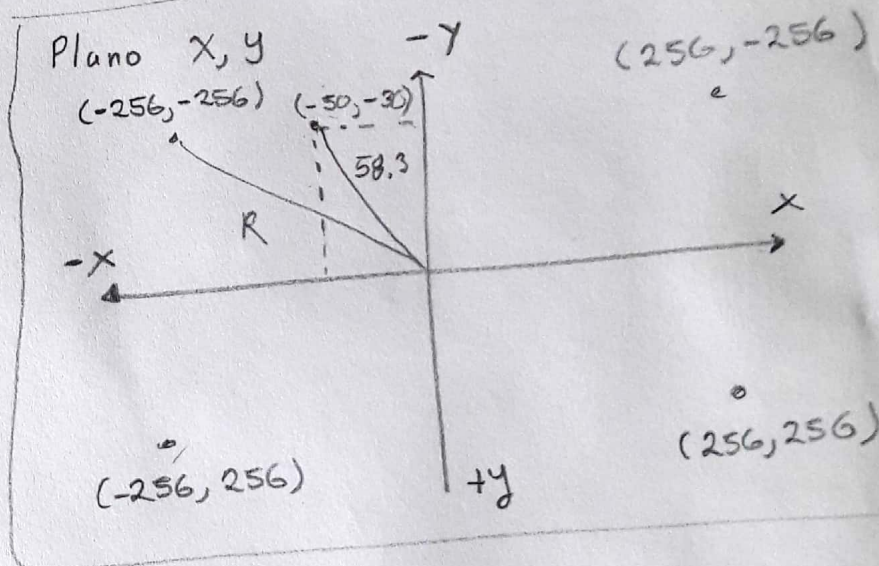 Plano X, y
-Y
(256, -256)
(-256, -256)
(-50, -30)
58.3
R
X
-X
(256, 256)
(-256, 256)
+y